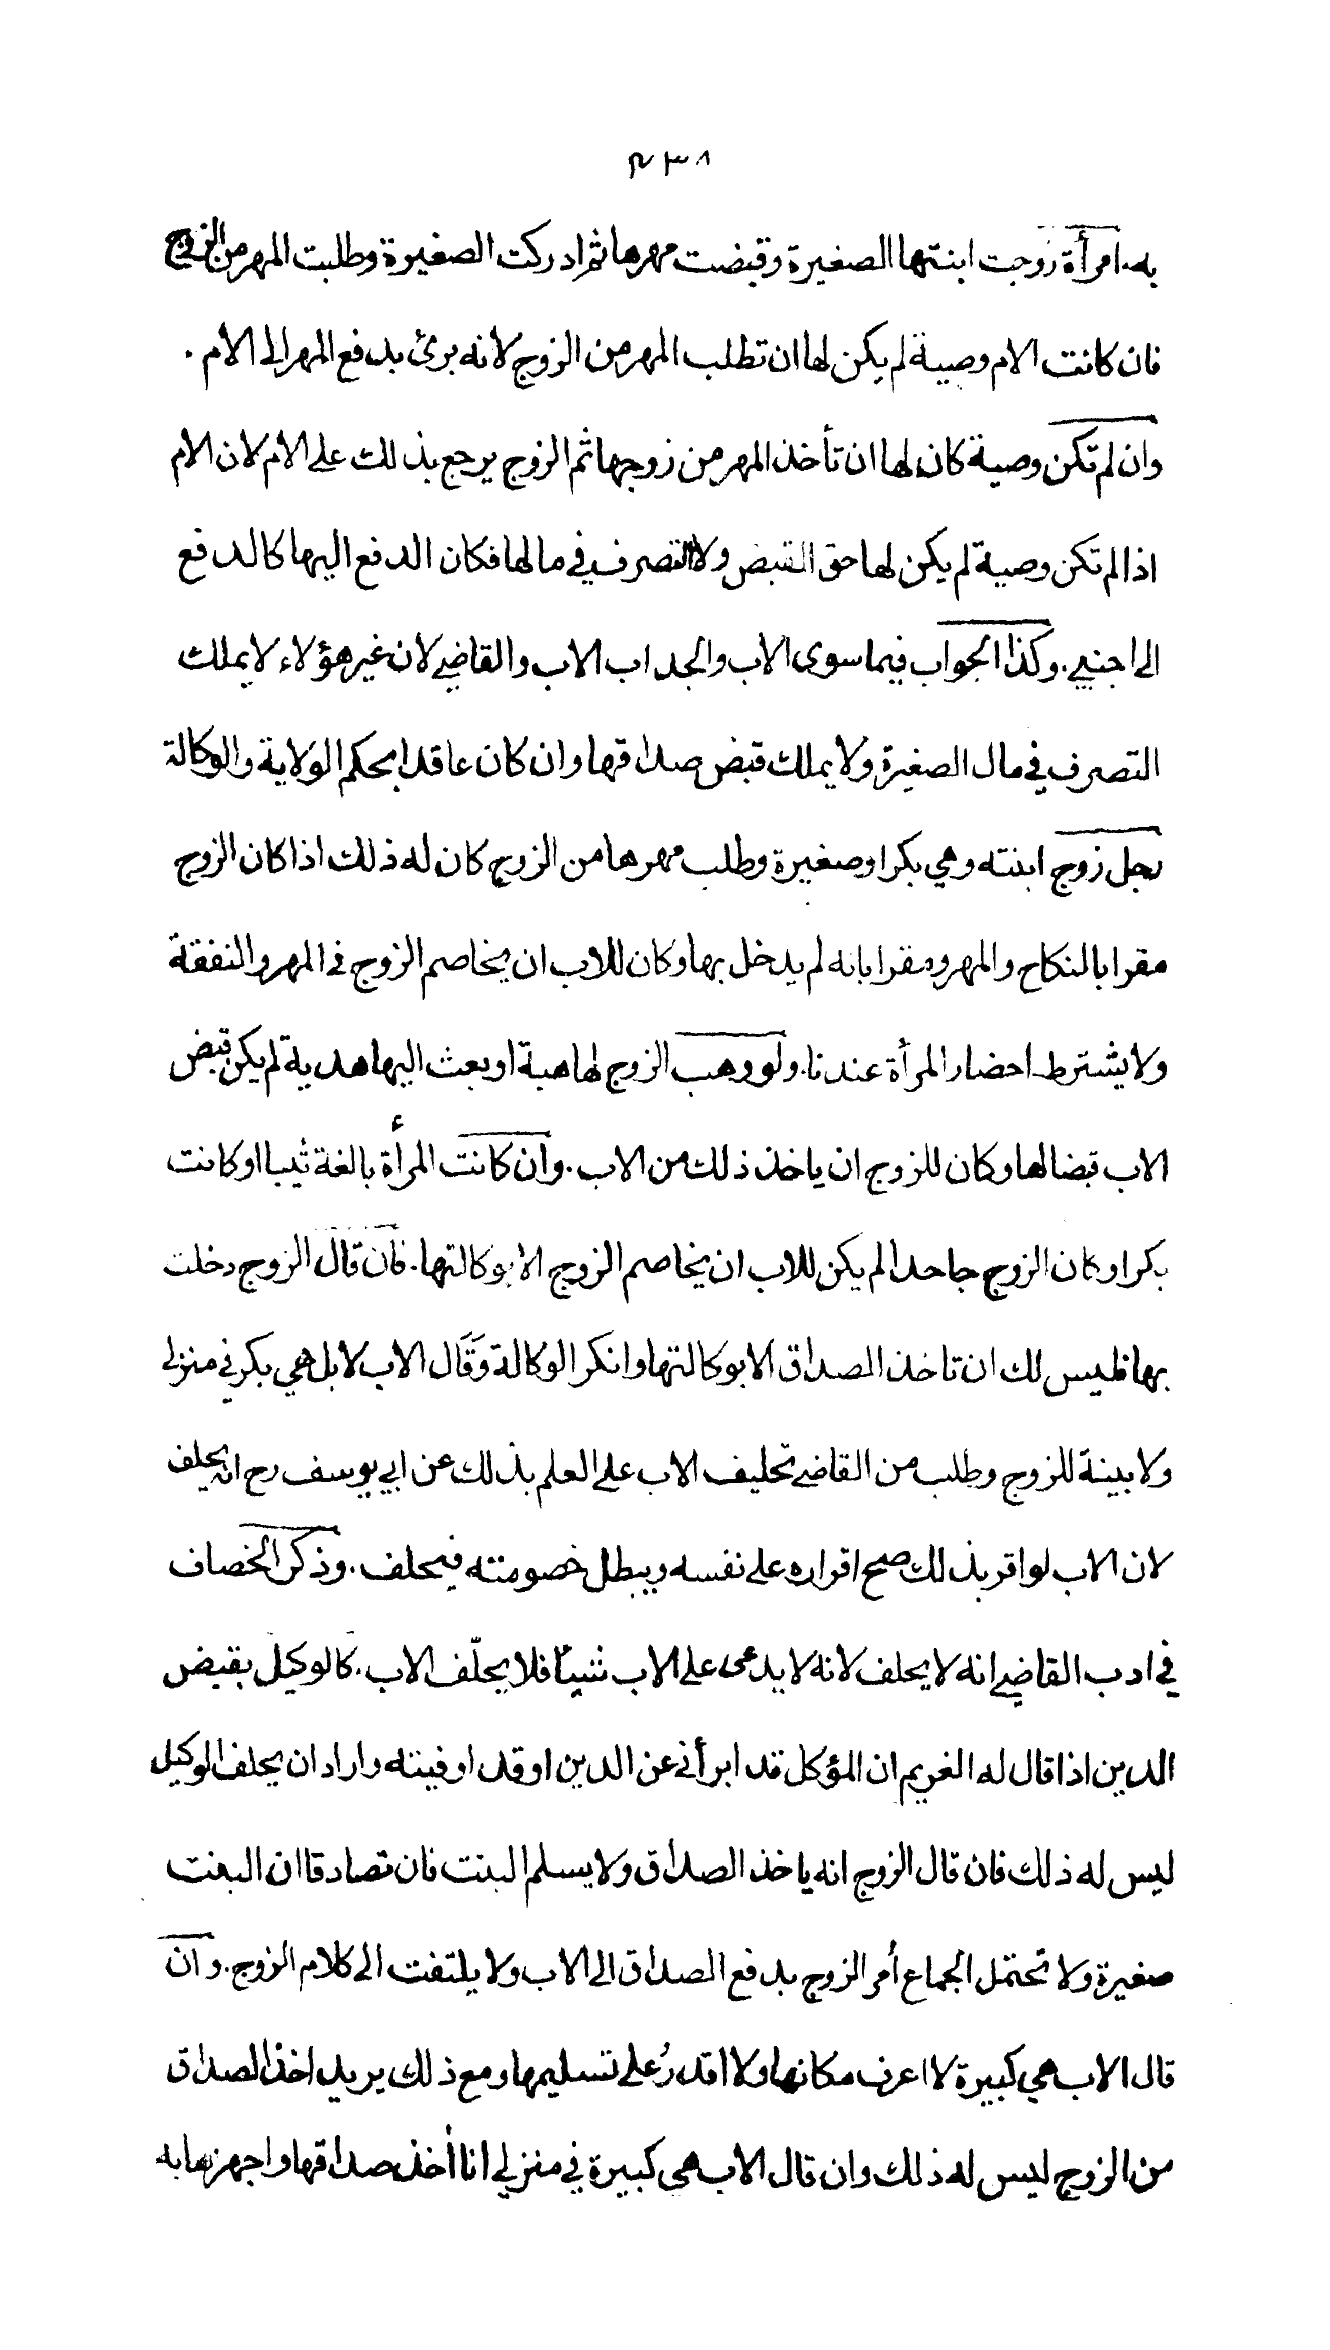 ٤٣٨
به. امرأة زوجت ابنتها الصغيرة وقبضت مهرها ثم ادركت الصغيرة وطلبت المهر من الزوج
فان كانت الام وصية لم يكن لها ان تطلب المهر من الزوج لانه برئ بدفع المهر الى الام .
وان لم تكن وصية كان لها ان تأخذ المهر من زوجها ثم الزوج يرجع بذلك على الام لان الام
اذا لم تكن وصية لم يكن لها حق القبض ولا التصرف في مالها فكان الدفع اليها كالدفع
الى اجنبي. وكذا الجواب فيما سوى الاب والجد اب الاب والقاضي لان غير هؤلاء لا يملك
التصرف في مال الصغيرة ولا يملك قبض صداقها وان كان عاقدا بحكم الولاية والوكالة
رجل زوج ابنته وهي بكر او صغيرة وطلب مهرها من الزوج كان له ذلك اذا كان الزوج
مقرا بالنكاح والمهر ومقرا بانه لم يدخل بها وكان للاب ان يخاصم الزوج في المهر والنفقة
ولا يشترط احضار المرأة عندنا. ولو وهب الزوج لها هبة او بعث اليها هدية لم يكن قبض
الاب قبضا لها وكان للزوج ان ياخذ ذلك من الاب. وان كانت المرأة بالغة ثيبا او كانت
بكرا وكان الزوج جاحدا لم يكن للاب ان يخاصم الزوج الا بوكالتها. فان قال الزوج دخلت
بها فليس لك ان تاخذ الصداق الا بوكالتها وانكر الوكالة وَقَال الاب لا بل هي بكر في منزلي
ولا بينة للزوج وطلب من القاضي تحليف الاب على العلم بذلك عن ابي يوسف رح انه يحلف
لان الاب لو اقر بذلك صح اقراره على نفسه ويبطل خصومته فيحلف. وذكر الخصاف
في ادب القاضي انه لا يحلف لانه لا يدعى على الاب شيئًا فلا يحلّف الاب. كالوكيل بقبض
الدين اذا قال له الغريم ان المؤكل قد ابرأني عن الدين او قد اوفيته واراد ان يحلف الوكيل
ليس له ذلك فان قال الزوج انه ياخذ الصداق ولا يسلم البنت فان تصادقا ان البنت
صغيرة ولا تحتمل الجماع أمر الزوج بدفع الصداق الى الاب ولا يلتفت الى كلام الزوج. وان
قال الاب هي كبيرة لا اعرف مكانها ولا اقدرُ على تسليمها ومع ذلك يريد اخذ الصداق
من الزوج ليس له ذلك وان قال الاب هي كبيرة في منزلي انا أخذ صداقها واجهزها به